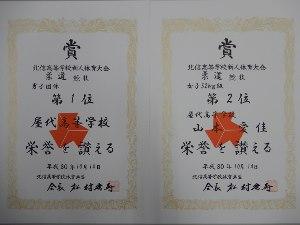 賞
北信高等学校新人体育大会
柔道 競技
男子団体
第1位
屋代高等学校
栄誉を讃える
平成30年10月13日
北信高等学校体育連盟
会長
賞
北信高等学校新人体育大会
柔道 競技
女子52kg級
第2位
屋代高等学校
山本 愛佳
栄誉を讃える
平成30年10月13日
北信高等学校体育連盟
会長